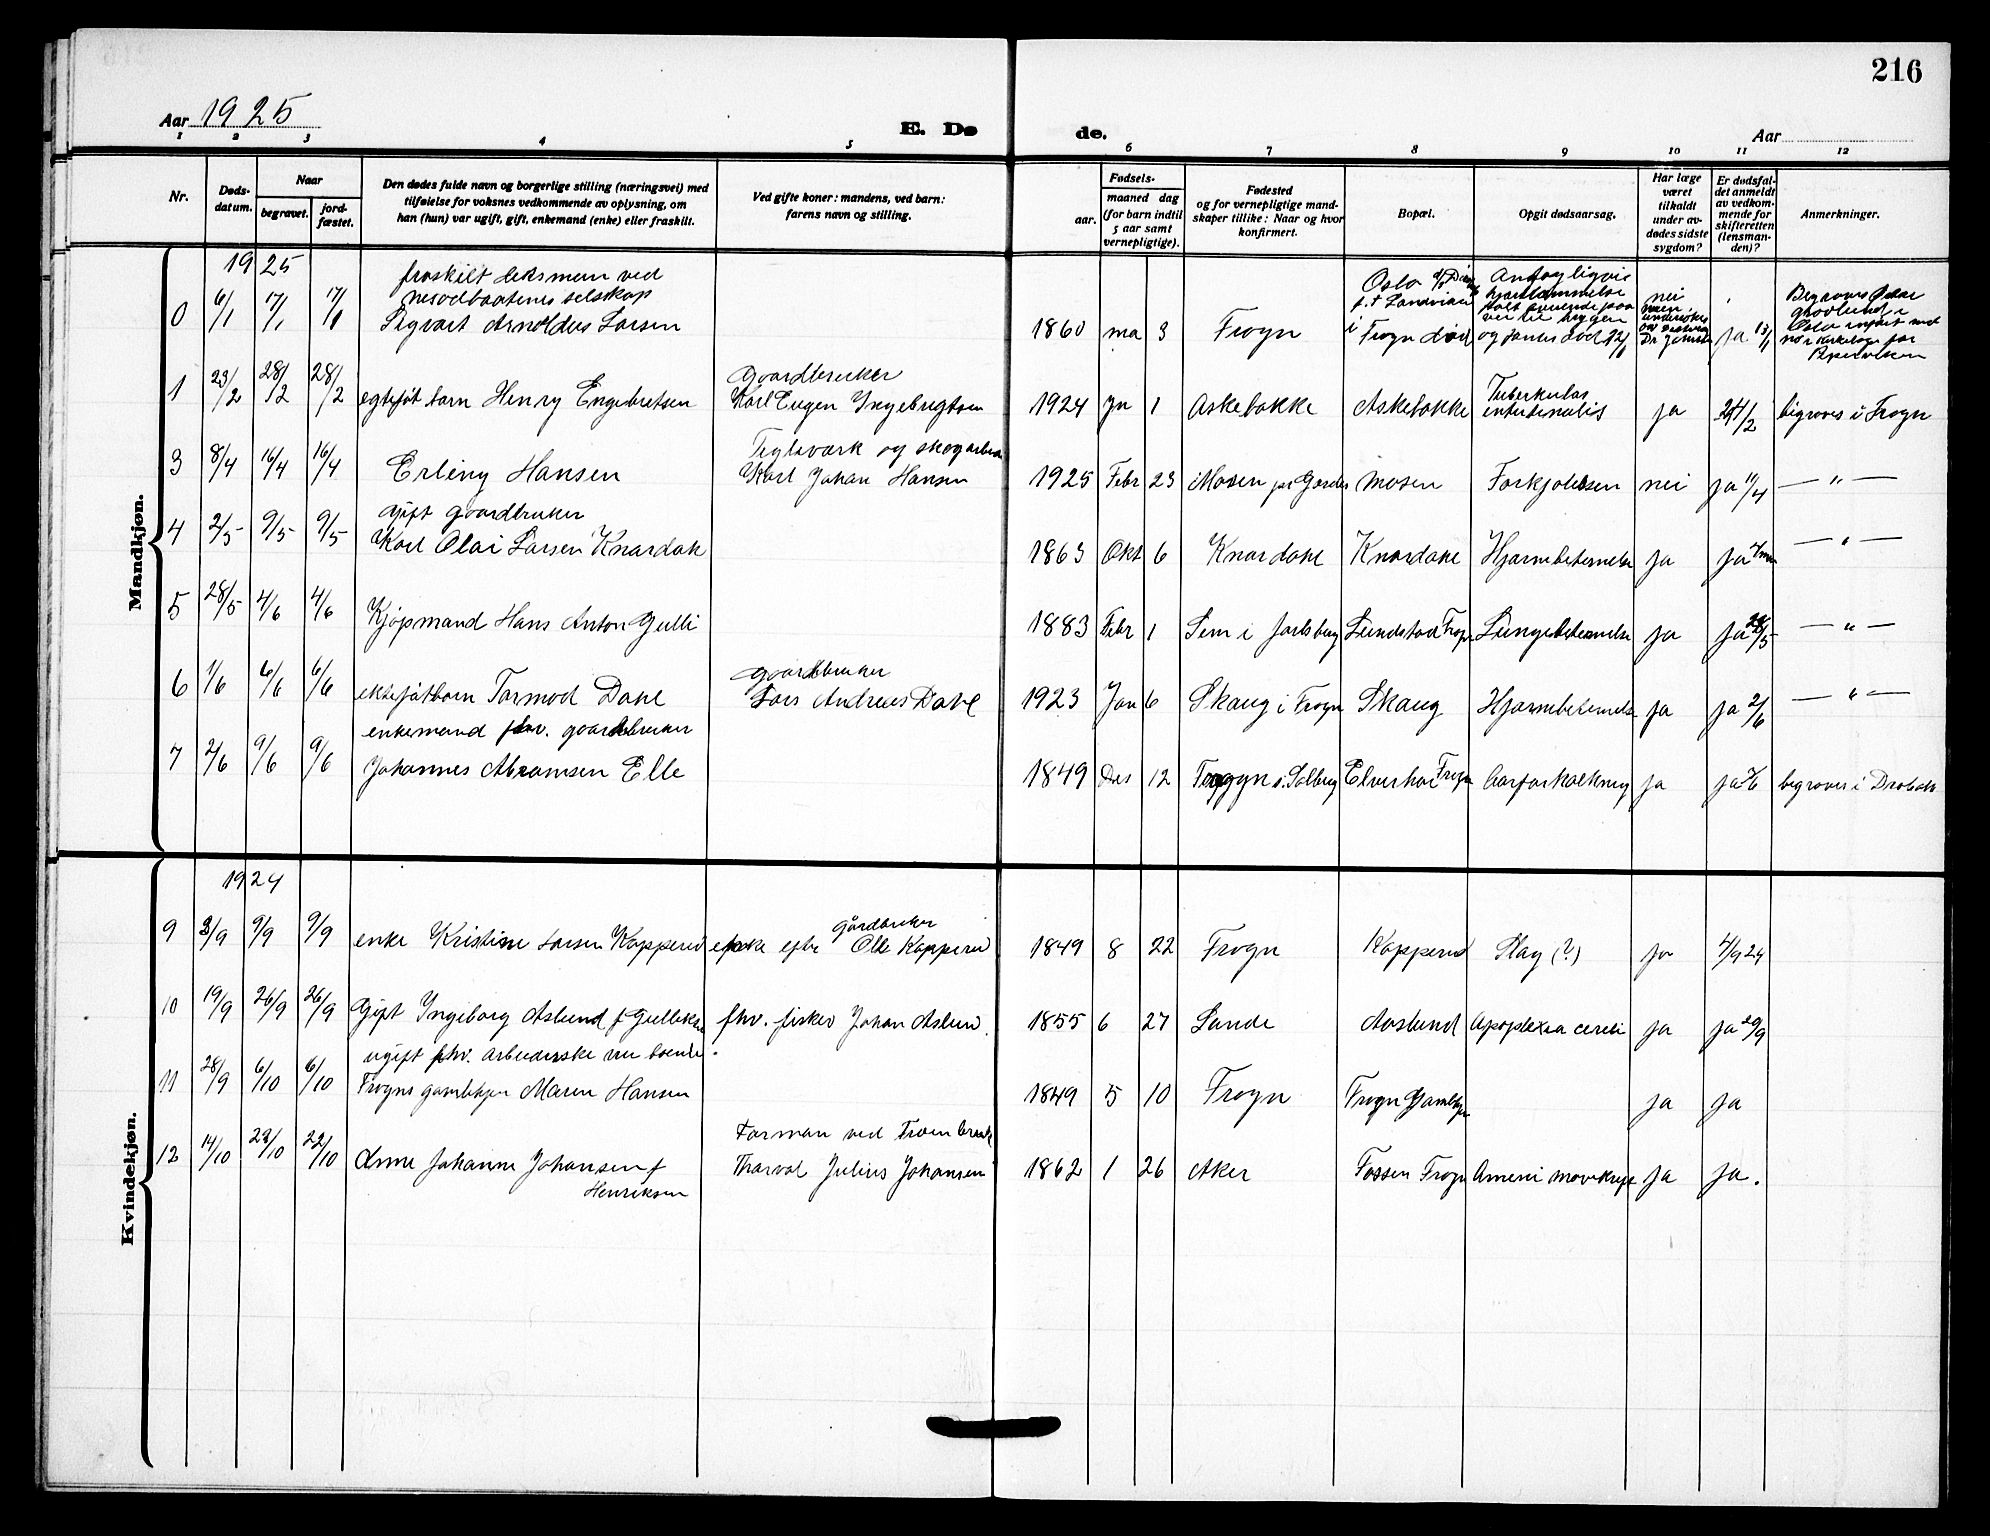 216
Aar 1925
E. Dø
de.
Aar
1 2 3 4 5 6 7 8 9 10 11 12
Nr.
Døds-
datum.
Naar
begravet.
jord-
fæstet.
Den dødes fulde navn og borgerlige stilling (næringsvei) med
tilføielse for voksnes vedkommende av oplysning, om
han (hun) var ugift, gift, enkemand (enke) eller fraskilt.
Ved gifte koner: mandens, ved barn:
farens navn og stilling.
Fødsels-
aar.
maaned dag
(for barn indtil
5 aar samt
vernepligtige).
Fødested
og for vernepligtige mand-
skaper tillike: Naar og hvor
konfirmert.
Bopæl.
Opgit dødsaarsag.
Har læge
været
tilkaldt
under av-
dødes sidste
sygdom?
Er dødsfal-
det anmeldt
av vedkom-
mende for
skifteretten
(lensman-
den)?
Anmerkninger.
Mandkjøn.
1925
fraskilt ved
nesodbaatenes selskap
0 6/1 17/1 17/1 Sigvart Arnoldus Larsen 1860 ma 3 Frogn
Oslo
f.t Sandvian
i
Frogn død
Antagligvis
hjertelammelse
og fanns død 12/1
nei
men
undersøkt
ja 13/1
Begraves Østre
gravlund i
Oslo indført med
no i kirkeboge for
gaardbruker
1 23/2 28/2 28/2 egteføt barn Henry Engebretsen Karl Eugen Yngebrigtsen 1924 1 Askebakke Askebakke Tuberkulos
intestinalis ja 24/2 begraves i Frogn
Teglsværk og skogarbeider
3 8/4 16/4 16/4 Erling Hansen Karl Johan Hansen 1925 Febr 23 Mosen Mosen Forkjølelsen nei ja 11/4 — " —
gift gaardbruker
4 2/5 9/5 9/5 Karl Olai Larsen Knardal 1863 Okt 6 Knardale Knardale Hjærnebetennelse ja ja — " —
5 28/5 4/6 4/6 Kjøpmand Hans Anton Gulli 1883 Febr 1 Sem i Jarlsberg Lundstad Frogn Lungebetennelse ja ja 28/5 — " —
gaardbruker
6 1/6 6/6 6/6 ekteføt barn Tormod Dahl Lars Andreas Dahl 1923 Jan 6 Skaug i Frogn Skaug Hjærnebetennelse ja ja 2/6 — " —
enkemand fhv. gaardbruker
7 2/6 9/6 9/6 Johannes Abramsen Elle 1849 Des 12 Frogn Aarforkalkning ja ja begraves i Drøbak
Kvindekjøn.
1924
gårdbruker
9 3/9 9/9 9/9 enke Kristine Larsen Kopperud enke efter Ole Kopperud 1849 8 22 Frogn Kopperud Slag (?) ja 4/9 24
10 19/9 26/9 26/9 Gift Ingeborg Aslund f Gulliksen fhv. fisker Johan Aslund. 1855 6 27 Sande Aaslund Apoplexia cerebi ja ja 20/9
ugift fhv. arbeiderske nu boende
11 28/9 6/10 6/10 Frogns gamlehjem Maren Hansen 1849 5 10 Frogn Frogn Gamlehjem ja ja
Forman ved
12 14/10 22/10 22/10 Anne Johanne Johansen f
Henriksen
Tharval Julius Johansen 1862 1 26 Aker Fossen Frogn ja ja.